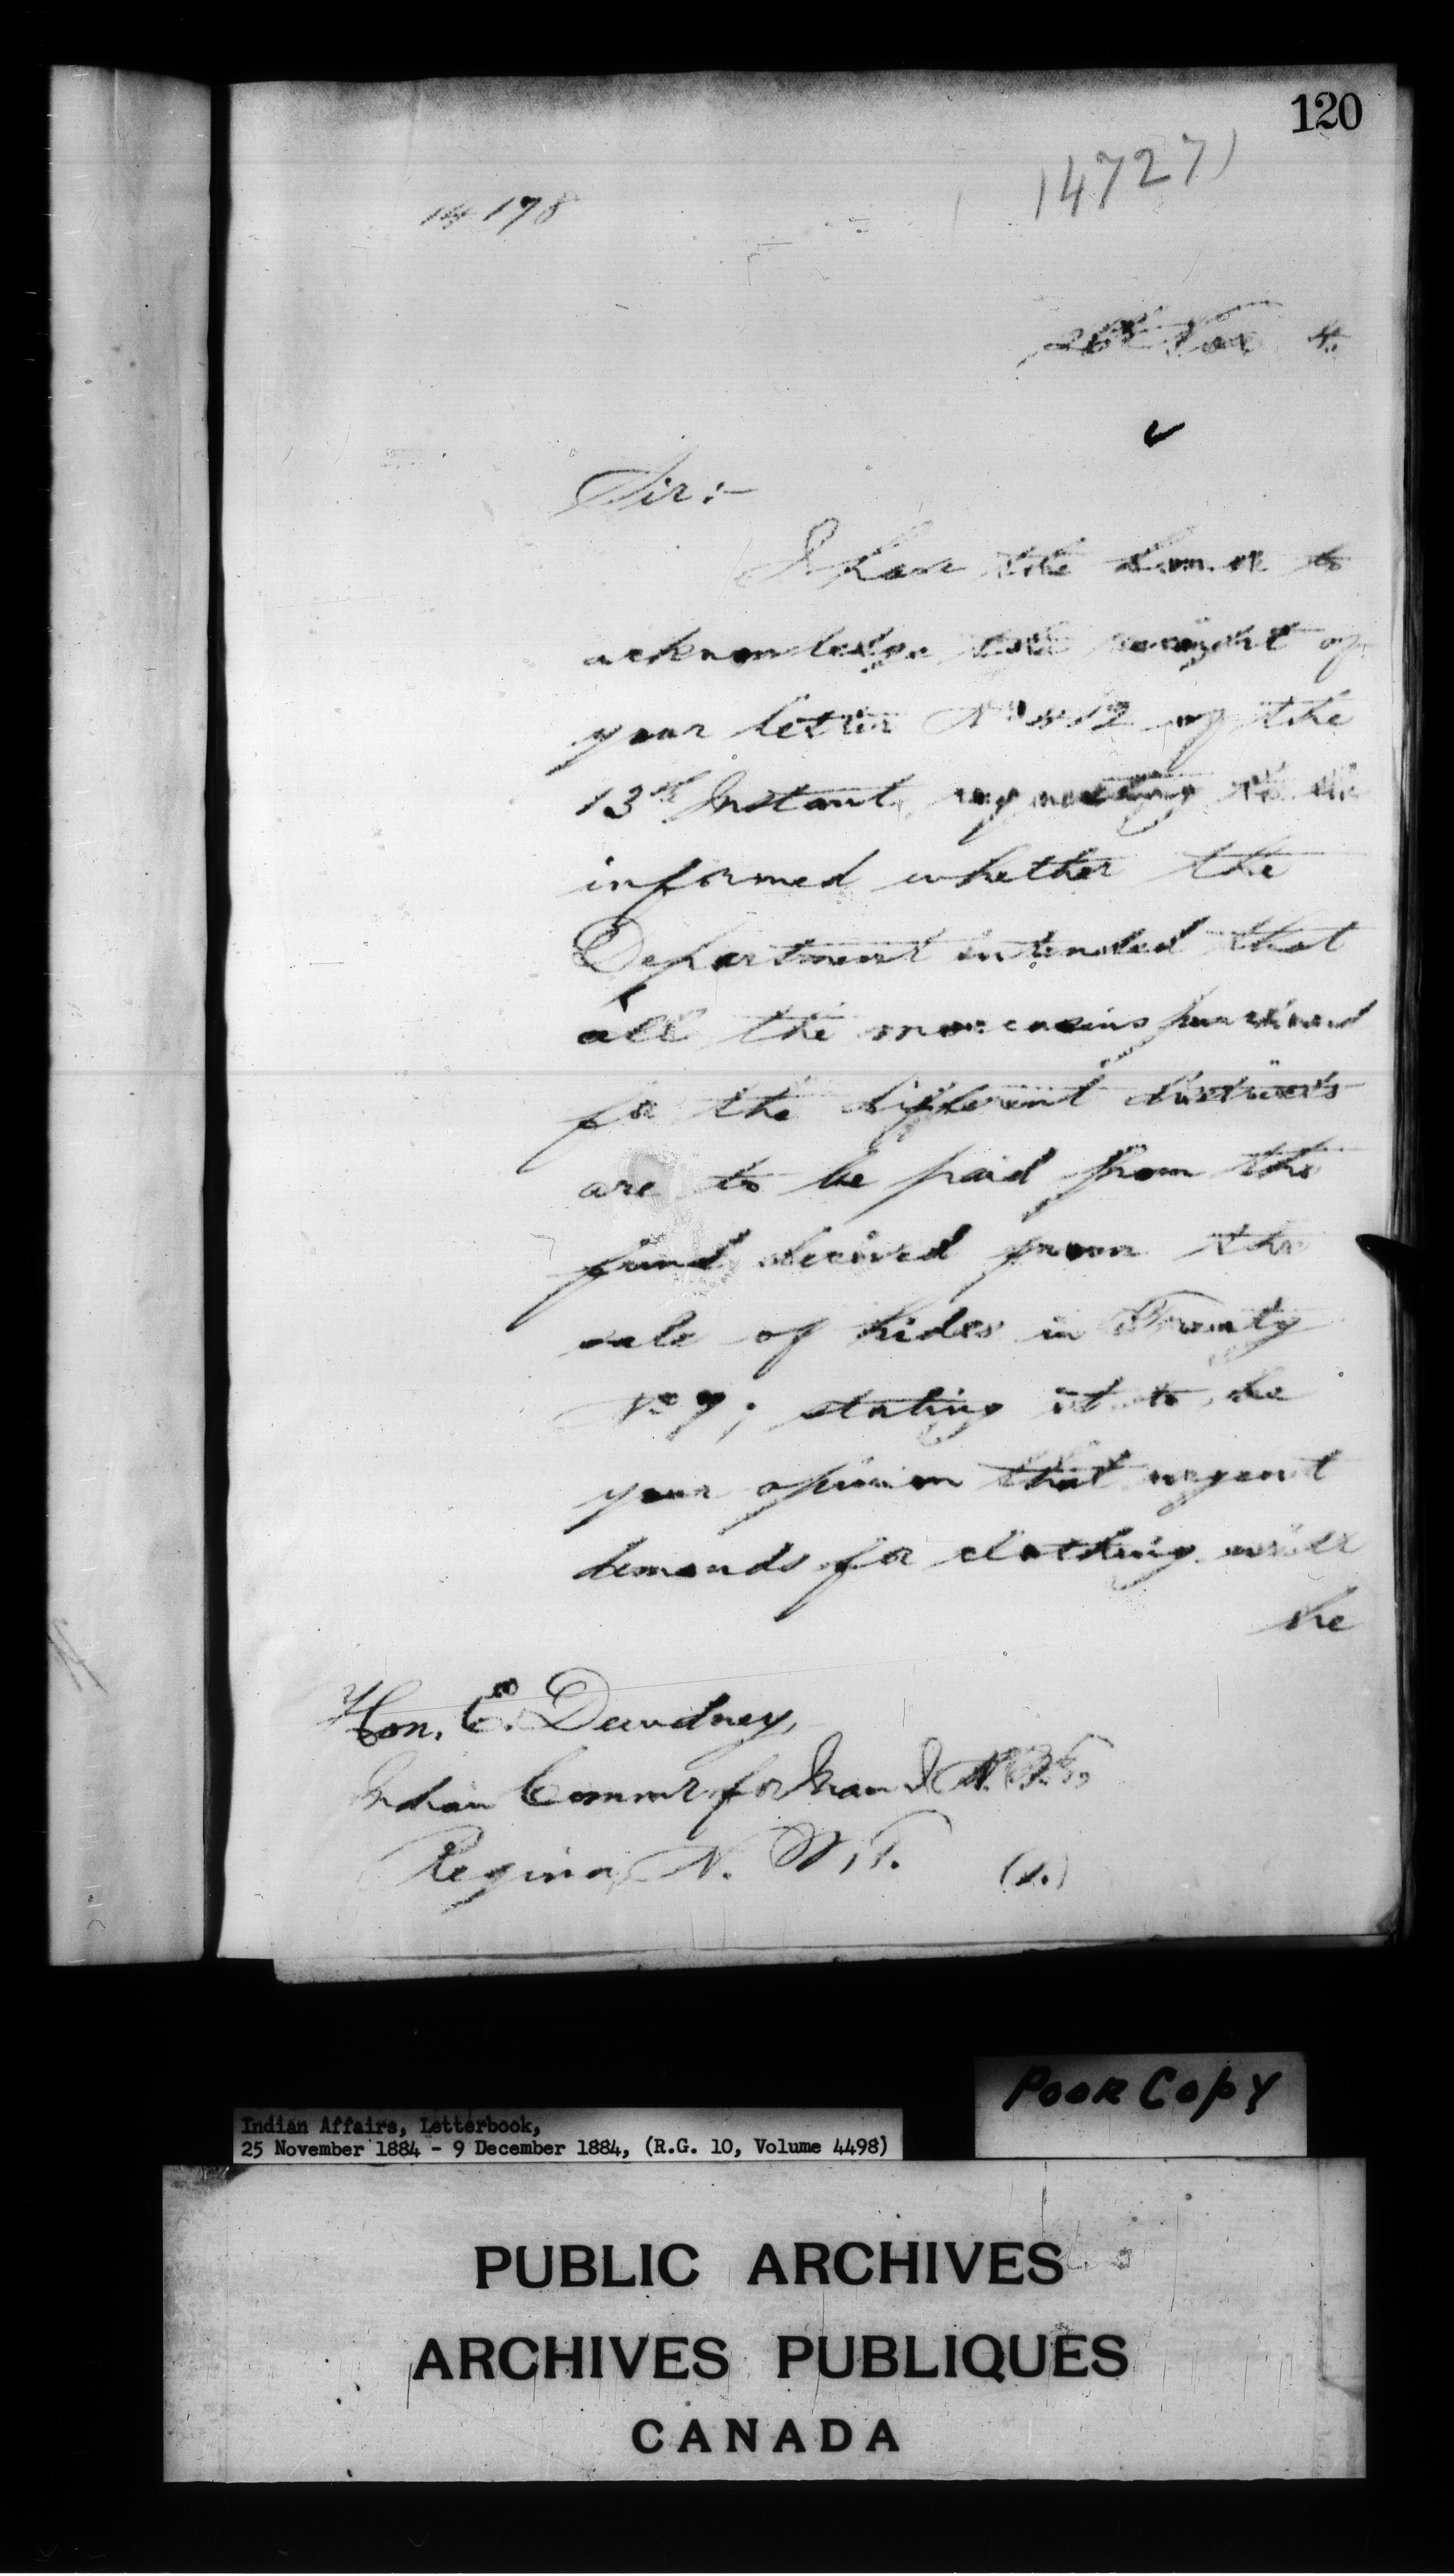 120
14727)
14178
26th Nov 4.
Sir:-
I have the honor to
acknowledge the receipt of
your letter No 812 of the
13th Instant, requesting to be
informed whether the
Department intended that
all the moccasins purchased
for the different districts
are to be paid from the
fund derived from the
sale of hides in Treaty
No 7; stating it to be
your opinion that urgent
demands for clothing will
be
Hon. E. Dewdney,
Indian Commr for Man & N.W.T.
Regina, N. W. T.
Poor Copy
Indian Affairs, Letterbook,
25 November 1884 - 9 December 1884, (R.G. 10, Volume 4498)
PUBLIC ARCHIVES
ARCHIVES PUBLIQUES
CANADA